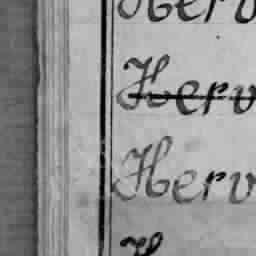 Herv
Herv
Herv
H